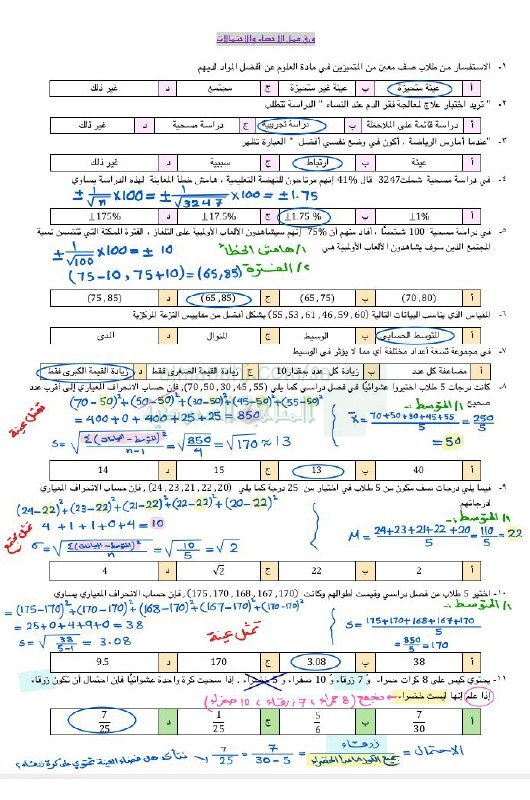 ورق عمل الإحصاء والاحتمالات
١- الاستفسار من طلاب صف معين من المتميزين في مادة العلوم عن أفضل المواد لديهم
أ عينة متحيزة ب عينة غير متحيزة ج مجتمع د غير ذلك
٢- "تريد اختبار علاج لمعالجة فقر الدم عند النساء" الدراسة تتطلب
أ دراسة قائمة على الملاحظة ب دراسة تجريبية ج دراسة مسحية د غير ذلك
٣- "عندما أمارس الرياضة ، أكون في وضع نفسي أفضل" العبارة تظهر
أ عينة ب ارتباط ج سببية د غير ذلك
٤- في دراسة مسحية شملت 3247 قال 41% إنهم مرتاحون للنهضة التعليمية ، هامش خطأ المعاينة لهذه الدراسة يساوي
± 1/√n ×100 = ± 1/√3247 ×100 = ± 1.75
أ ±1% ب ±1.75 % ج ±17.5% د ±175%
٥- في دراسة مسحية 100 شخصًا ، أفاد منهم أن 75% إنهم سيشاهدون الألعاب الأولمبية على التلفاز ، الفترة الممكنة التي تتضمن نسبة
المجتمع الذين سوف يشاهدون الألعاب الأولمبية هي
١/ هامش الخطأ ± 1/√100 ×100 = ± 10
٢/ الفترة (75-10 , 75+10) = (65,85)
أ (70, 80) ب (65, 75) ج (65, 85) د (75, 85)
٦- المقياس الذي يناسب البيانات التالية (61, 46, 59, 60, 53, 55) بشكل أفضل من مقاييس النزعة المركزية
أ المتوسط الحسابي ب الوسيط ج المنوال د المدى
٧- في مجموعة تسعة أعداد مختلفة أي مما لا يؤثر في الوسيط
أ مضاعفة كل عدد ب زيادة كل عدد بمقدار 10 ج زيادة القيمة الصغرى فقط د زيادة القيمة الكبرى فقط
٨- كانت درجات 5 طلاب اختيروا عشوائيًا في فصل دراسي كما يلي (55, 45, 30, 50, 70) , فإن حساب الانحراف المعياري إلى أقرب عدد
صحيح
(70-50)²+(50-50)²+(30-50)²+(45-50)²+(55-50)²
١/ المتوسط
= 400+0+400+25+25 = 850
x̄ = 70+50+30+45+55/5 = 250/5
= 50
تمثل عينة
S = √Σ(المتوسط - البيانات)²/n-1 = √850/4 = √170 ≈ 13
أ 40 ب 13 ج 15 د 14
٩- فيما يلي درجات نصف مكون من 5 طلاب في اختبار من 25 درجة كما يلي (20, 22, 21, 23, 24) , فإن حساب الانحراف المعياري
لدرجاتهم
(24-22)²+(23-22)²+(21-22)²+(22-22)²+(20-22)²
١/ المتوسط
4+1+1+0+4 = 10
M = 24+23+21+22+20/5 = 110/5 = 22
تمثل مجتمع
σ = √Σ(المتوسط - البيانات)²/n = √10/5 = √2
أ 2 ب 22 ج √2 د 4
١٠- اختير 5 طلاب من فصل دراسي وقيست أطوالهم وكانت (167, 168, 170, 175, 170) , فإن حساب الانحراف المعياري يساوي
= (175-170)²+(170-170)²+(168-170)²+(167-170)²+(170-170)²
المتوسط
= 25+0+4+9+0 = 38
= 175+170+168+167+170/5
S = √38/5-1 = 3.08
تمثل عينة
= 850/5 = 170
أ 38 ب 3.08 ج 170 د 9.5
١١- يحتوي كيس على 8 كرات حمراء و 7 زرقاء و 10 صفراء و 5 خضراء , إذا سحبت كرة واحدة عشوائيًا فإن احتمال أن تكون زرقاء
إذا علم إنها ليست خضراء
(8 حمراء ، 7 زرقاء ، 10 صفراء)
أ 7/30 ب 5/6 ج 1/25 د 7/25
الاحتمال = زرقاء / جميع الكور ماعدا الخضراء = 7/30-5 = 7/25